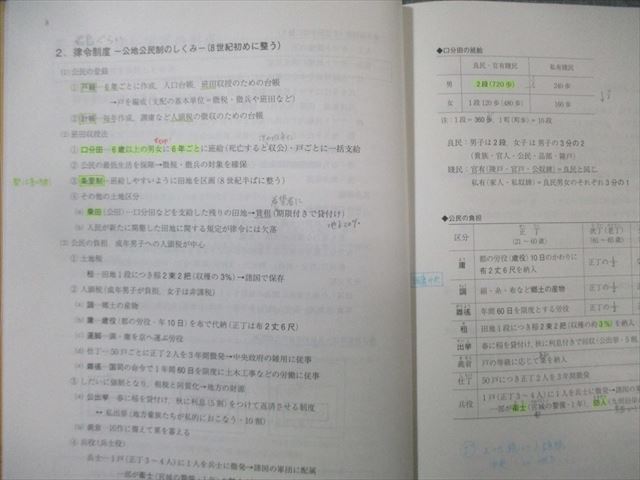 8
2. 律令制度 －公地公民制のしくみ－(8世紀初めに整う)
(1) 公民の登録
① 戸籍…6年ごとに作成、人口台帳、班田収授のための台帳
→戸を編成(支配の基本単位＝徴税・徴兵や班田など)
② 計帳…毎年作成、調庸など人頭税の徴収のための台帳
(2) 班田収授法
① 口分田…6歳以上の男女に6年ごとに班給(死亡すると収公)・戸ごとに一括支給
② 公民の最低生活を保障→徴税・徴兵の対象を確保
③ 条里制…班給しやすいように田地を区画(8世紀半ばに整う)
④ その他の土地区分
(a) 乗田(公田)…口分田などを支給した残りの田地→賃租(期限付きで貸付け)
(b) 人民が新たに開墾した田地に関する規定が律令には欠落
(3) 公民の負担 成年男子への人頭税が中心
① 土地税
租…田地1段につき稲2束2把(収穫の3%)→諸国で保存
② 人頭税(成年男子が負担、女子は非課税)
(a) 調…郷土の産物
(b) 庸…歳役(都の労役・年10日)を布で代納(正丁は布2丈6尺)
(c) 運脚…調・庸を京へ運ぶ労役
(d) 仕丁…50戸ごとに正丁2人を3年間徴発→中央政府の雑用に従事
(e) 雑徭…国司の命令で1年間60日を限度に土木工事などの労働に従事
③ しだいに強制となり、租税と同質化→地方の財源
(a) 公出挙…春に稲を貸付け、秋に利息(5割)をつけて返済させる制度
↔ 私出挙(地方豪族たちが私的におこなう・10割)
(b) 義倉…凶作に備えて粟を蓄える
④ 兵役(兵士役)
兵士…1戸(正丁3～4人)に1人を兵士に徴発→諸国の軍団に配属
◆口分田の班給
良民・官有賤民
私有賤民
男
2段(720歩)
240歩
女
1段120歩(480歩)
160歩
注：1段＝360歩、1町(町歩)＝10段
良民：男子は2段 女子は男子の3分の2
(貴族・官人・公民・品部・雑戸)
賤民：官有(陵戸・官戸・公奴婢)＝良民と同じ
私有(家人・私奴婢)＝良民男女のそれぞれ3分の1
◆公民の負担
区分
正丁
(21～60歳)
(61～65歳)
庸
都の労役(歳役)10日のかわりに
布2丈6尺を納入
正丁の1/2
調
絹・糸・布など郷土の産物
正丁の1/2
雑徭
年間60日を限度とする労役
正丁の1/2
租
田地1段につき稲2束2把(収穫の約3%)を納入
出挙
春に稲を貸付け、秋に利息付きで回収(公出挙：5割
義倉
戸の等級に応じて粟を納入
仕丁
50戸につき正丁2人を3年間徴発
兵役
1戸(正丁3～4人)に1人を兵士に徴発→諸国の
一部が衛士(宮城の警備・1年)、防人